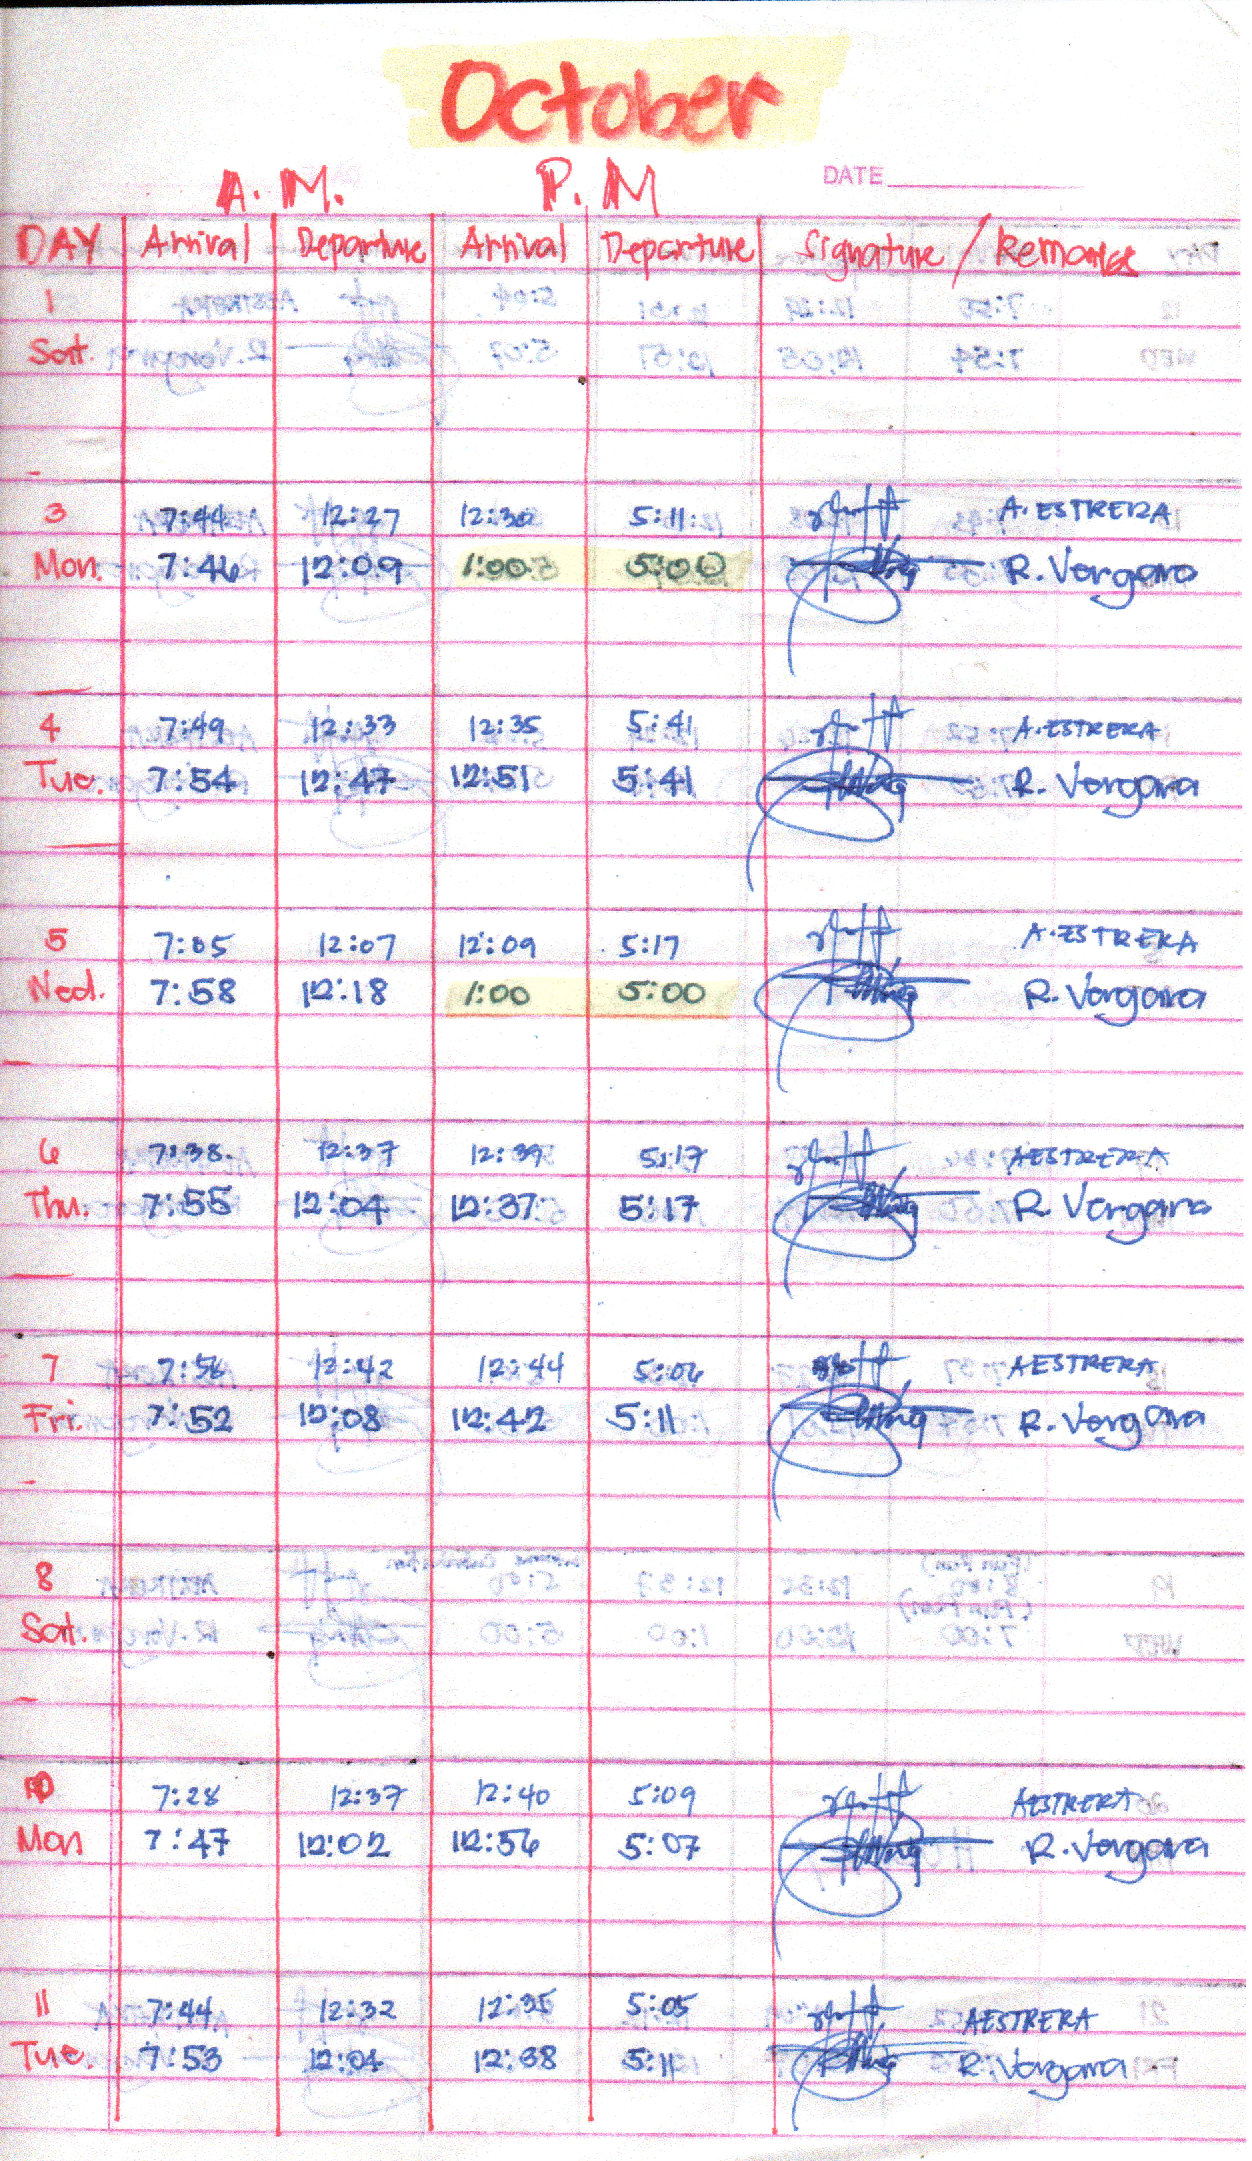 October
A.M. P.M
DATE
DAY Arrival Departure Arrival Departure Signature / Remarks
1
Sat.
3 7:44 12:27 12:30 5:11 A. ESTRERA
Mon. 7:46 12:09 1:00 5:00 R. Vergara
4 7:49 12:33 12:35 5:41 A. ESTRERA
Tue. 7:54 12:47 12:51 5:41 R. Vergara
5 7:05 12:07 12:09 5:17 A. ESTRERA
Wed. 7:58 12:18 1:00 5:00 R. Vergara
6 7:38 12:37 12:39 5:17 AESTRERA
Thu. 7:55 12:04 12:37 5:17 R Vergara
7 7:56 12:42 12:44 5:06 AESTRERA
Fri. 7:52 12:08 12:42 5:11 R. Vergara
8
Sat.
10 7:28 12:37 12:40 5:09 AESTRERA
Mon 7:47 12:02 12:56 5:07 R. Vergara
11 7:44 12:32 12:35 5:05 AESTRERA
Tue. 7:53 12:04 12:38 5:11 R. Vergara